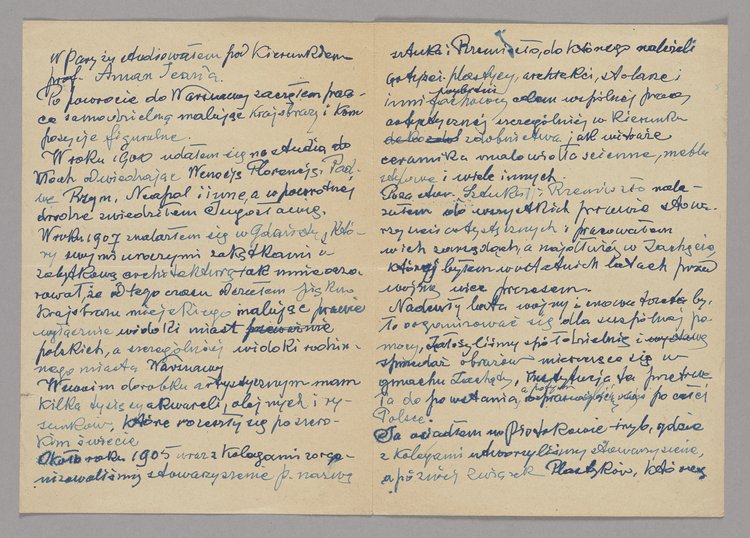 W Paryżu studiowałem pod Kierunkiem
prof. Aman Jean'a.
Po powrocie do Warszawy zacząłem prac-
cę samodzielną malując Krajobrazy i Kom
pozycje figuralne.
W roku 1900 udałem się na studia do
Włoch odwiedzając Wenecję Florencję, Pad-
wę Rzym, Neapol i inne, a w powrotnej
drodze zwiedziłem Jugosławię.
W roku 1907 znalazłem się w Gdańsku, Któ-
ry swymi uroczymi zakątkami i
zabytkową architekturą tak mnie ocza-
rował, że Długi czas
Krajobrazu miejskiego malując prawie
wyłącznie widoki miast
polskich, a szczególniej widoki rodzin-
nego miasta Warszawy
W swoim dorobku artystycznym mam
kilka tysięcy akwareli, olejnych i ry-
sunków, które rozeszły się po szero-
kim świecie
Około roku 1905 wraz z Kolegami zorga-
nizowaliśmy stowarzyszenie p. nazwą
sztuka i Rzemiosło, do którego należeli
artyści plastycy, architekci, stolarze i
inni fachowcy celem wspólnej pracy
artystycznej szczególniej w kierunku
zdobnictwa jak witraże
ceramika malowidła ścienne, meble
i wiele innych.
Poza stow. Sztuka i Rzemiosło nale-
żałem do wszystkich prawie stowa-
rzyszeń artystycznych i pracowałem
w ich zarządach, a najdłużej w Zachęcie
której byłem w ostatnich latach przed
wojną vice prezesem.
Nadeszły lata wojny i znowu trzeba by-
ło zorganizować się dla wspólnej po-
mocy, Założyliśmy spółdzielnię i
sprzedaż obrazów mieszcząca się w
gmachu Zachęty, Instytucja ta przetrwa-
ła do powstania, a potem po części
Polsce.
Ja osiadłem w Piotrkowie-tryb. gdzie
z Kolegami utworzyliśmy stowarzyszenie,
a później związek Plastyków, którego